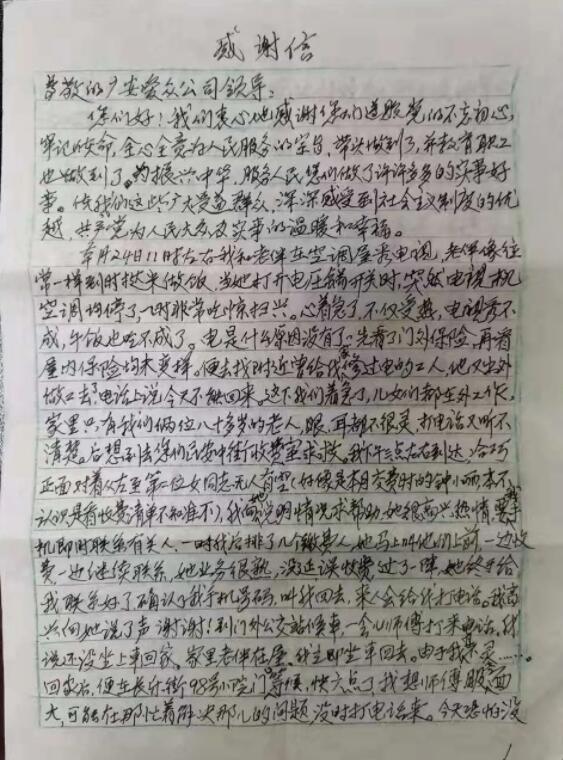 感谢信
尊敬的广安爱众公司领导：
您们好！我们衷心地感谢你们遵照党的不忘初心，
牢记使命，全心全意为人民服务的宗旨，带头做到了，并教育职工
也做到了。为振兴中华，服务人民您们做了许许多多的实事好
事。使我们这些广大受益群众，深深感受到社会主义制度的优
越，共产党为人民大办及实事的温暖和幸福。
本月24日11时左右我和老伴在空调屋看电视，老伴像往
常一样到时起来做饭，当她打开电压锅开关时，突然电视机
空调均停了，一时非常吃惊扫兴。心着急了，不仅受热，电视看不
成，午饭也吃不成了。电是什么原因没有了，先看了门外保险，再看
屋内保险均未变样。便去找附近曾给我家修过电的工人，他又出外
做工去了，电话上说今天不能回来。这下我们着急了，儿女们都在外工作，
家里只有我们俩位八十多岁的老人，眼、耳都不很灵，打电话又听不
清楚。后想到去你们民安中街收费室求救。我下午三点左右到达，恰巧
正面对着从左至第二位女同志无人有空（好像是本月交费时的钟小丽本不
认识是看收费清单不知准不），我向她说明情况求帮助，她很高兴热情要我手
机即时联系有关人，一时我后排了几个缴费人，她马上叫他们上前一边收
费一边继续联系，她业务很熟，没延误收费，过了一阵，她终于给
我联系好了确认了我手机号码，叫我回去，来人会给你打电话。我高
兴向她说了声谢谢！到门外公交站候车，一会儿师傅打来电话，我
说还没坐上车回家，家里老伴在屋，我立即坐车回去。由于我
回家后，便在长佇街98号小院门等候，快六点了，我想师傅服务面
大，可能在那忙着解决那儿的问题，没时打电话来。今天恐怕没